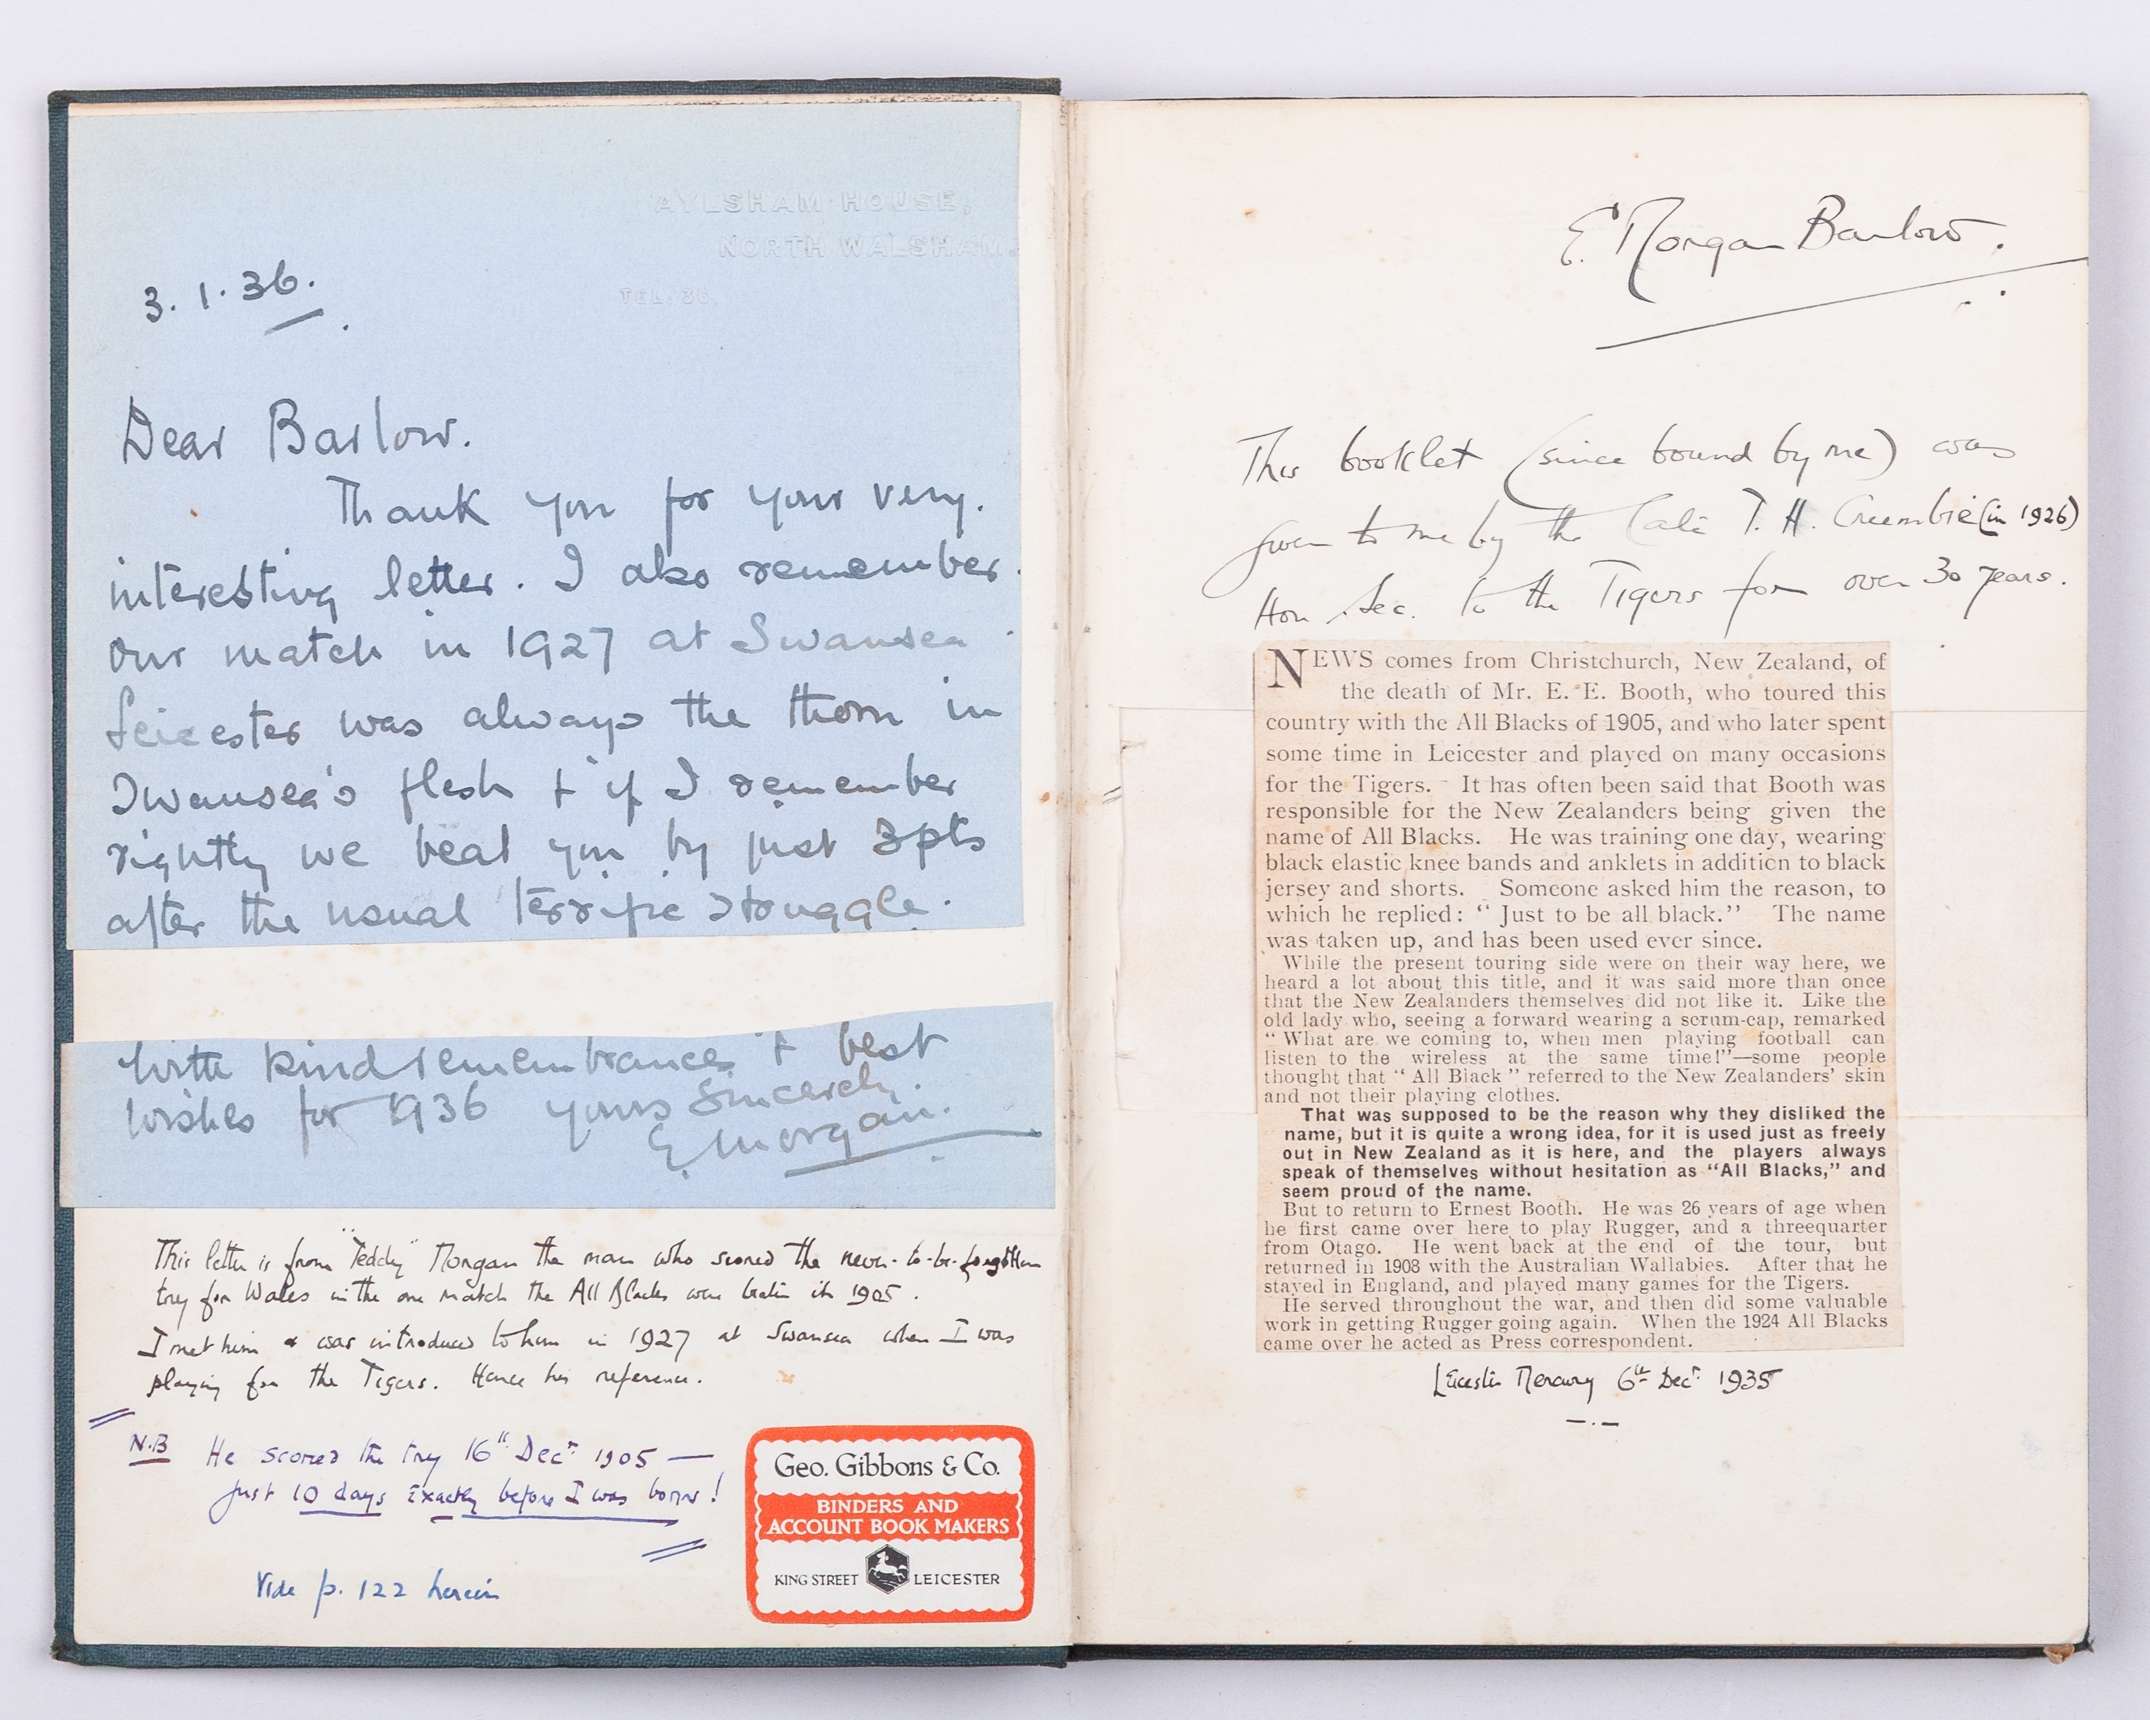 AYLSHAM HOUSE,
NORTH WALSHAM.
TEL. 36.
3.1.36.
Dear Barlow.
Thank you for your very.
interesting letter. I also remember.
our match in 1927 at Swansea
Leicester was always the thorn in
Swansea's flesh & if I remember
rightly we beat you by just 3pts
after the usual terrific struggle.
With kind remembrances & best
wishes for 1936 yours Sincerely.
E. Morgan.
This letter is from "Teddy" Morgan the man who scored the never-to-be-forgotten
try for Wales in the one match the All Blacks were beaten in 1905.
I met him & was introduced to him in 1927 at Swansea when I was
playing for the Tigers. Hence his reference.
N.B He scored the try 16th Decr 1905 —
just 10 days Exactly before I was born!
Vide p. 122 herein
Geo. Gibbons & Co.
BINDERS AND
ACCOUNT BOOK MAKERS
KING STREET LEICESTER
E. Morgan Barlow.
This booklet (since bound by me) was
given to me by the late T. H. Crumbie (in 1926)
Hon. Sec. to the Tigers for over 30 years.
NEWS comes from Christchurch, New Zealand, of
the death of Mr. E. E. Booth, who toured this
country with the All Blacks of 1905, and who later spent
some time in Leicester and played on many occasions
for the Tigers. It has often been said that Booth was
responsible for the New Zealanders being given the
name of All Blacks. He was training one day, wearing
black elastic knee bands and anklets in addition to black
jersey and shorts. Someone asked him the reason, to
which he replied: "Just to be all black." The name
was taken up, and has been used ever since.
While the present touring side were on their way here, we
heard a lot about this title, and it was said more than once
that the New Zealanders themselves did not like it. Like the
old lady who, seeing a forward wearing a scrum-cap, remarked
"What are we coming to, when men playing football can
listen to the wireless at the same time!"—some people
thought that "All Black" referred to the New Zealanders' skin
and not their playing clothes.
That was supposed to be the reason why they disliked the
name, but it is quite a wrong idea, for it is used just as freely
out in New Zealand as it is here, and the players always
speak of themselves without hesitation as "All Blacks," and
seem proud of the name.
But to return to Ernest Booth. He was 26 years of age when
he first came over here to play Rugger, and a threequarter
from Otago. He went back at the end of the tour, but
returned in 1908 with the Australian Wallabies. After that he
stayed in England, and played many games for the Tigers.
He served throughout the war, and then did some valuable
work in getting Rugger going again. When the 1924 All Blacks
came over he acted as Press correspondent.
Leicester Mercury 6th Decr 1935